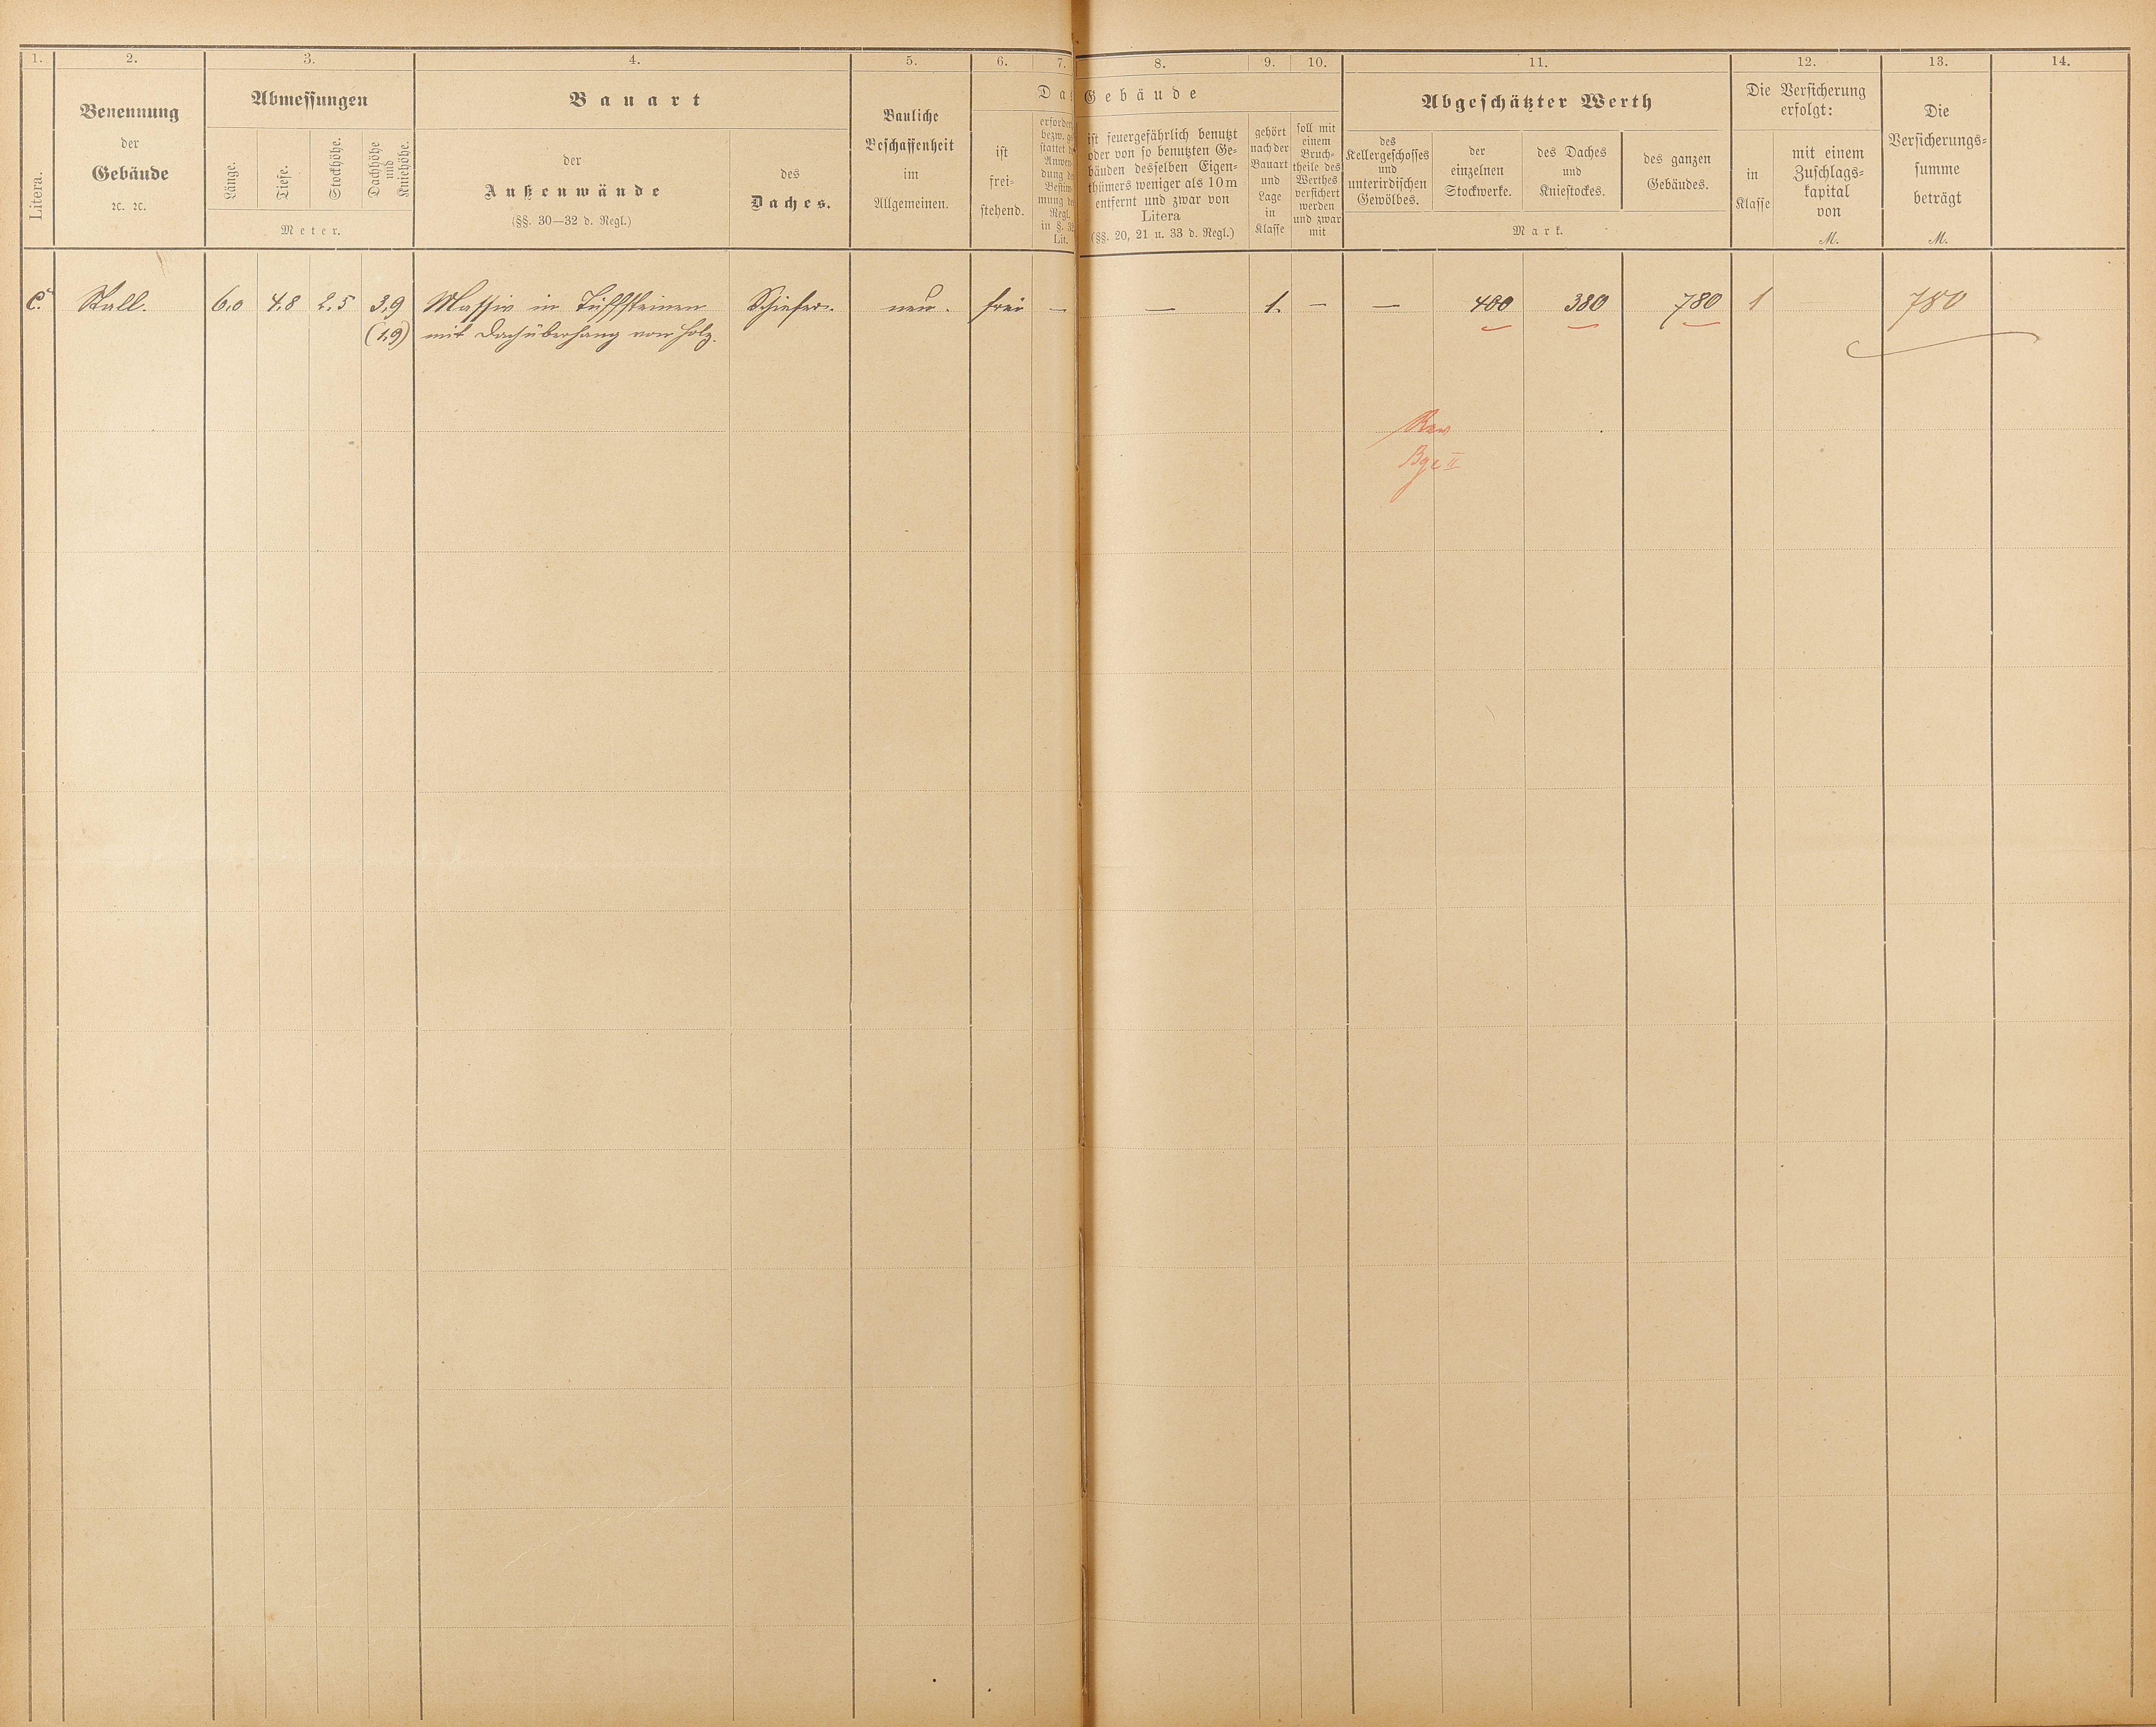 1.
2.
3.
4.
5.
6.
7.
8.
9.
10.
11.
12.
13.
14.
Litera.
Benennung
der
Gebäude
ꝛc. ꝛc.
Abmessungen
Länge.
Tiefe.
Stockhöhe.
Dachhöhe
und
Kniehöhe.
Meter.
Bauart
der
Außenwände
(§§. 30—32 d. Regl.)
des
Daches.
Bauliche
Beschaffenheit
im
Allgemeinen.
Gebäude
ist
frei-
stehend.
ist feuergefährlich benutzt
oder von so benutzten Ge-
bäuden desselben Eigen-
thümers weniger als 10 m
entfernt und zwar von
Litera
(§§. 20, 21 u. 33 d. Regl.)
gehört
nach der
Bauart
und
Lage
in
Klasse
soll mit
einem
Bruch-
theile des
Werthes
versichert
werden
und zwar
mit
Abgeschätzter Werth
des
Kellergeschosses
und
unterirdischen
Gewölbes.
der
einzelnen
Stockwerke.
des Daches
und
Kniestockes.
des ganzen
Gebäudes.
Mark.
Die Versicherung
erfolgt:
in
Klasse
mit einem
Zuschlags-
kapital
von
M.
Die
Versicherungs-
summe
beträgt
M.
C. Stall. 6,0 4,8 2,5 3,9 Massiv in Tuffsteinen Schiefer. neu. frei — — 1. — — 400 380 780 1 780
(1,9) mit Dachüberhang von Holz.